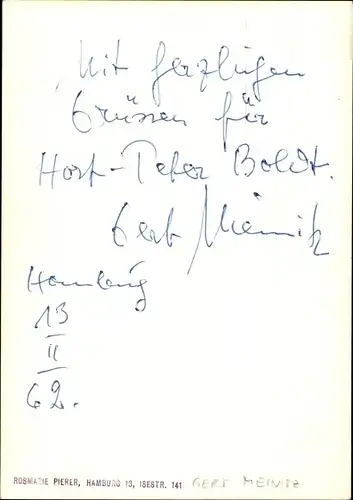 Mit herzlichen
Grüssen für
Horst-Peter Boldt.
Gert Meinitz
Hamburg
13
II
62.
ROSMARIE PIERER, HAMBURG 13, ISESTR. 141 GERT MEINITZ